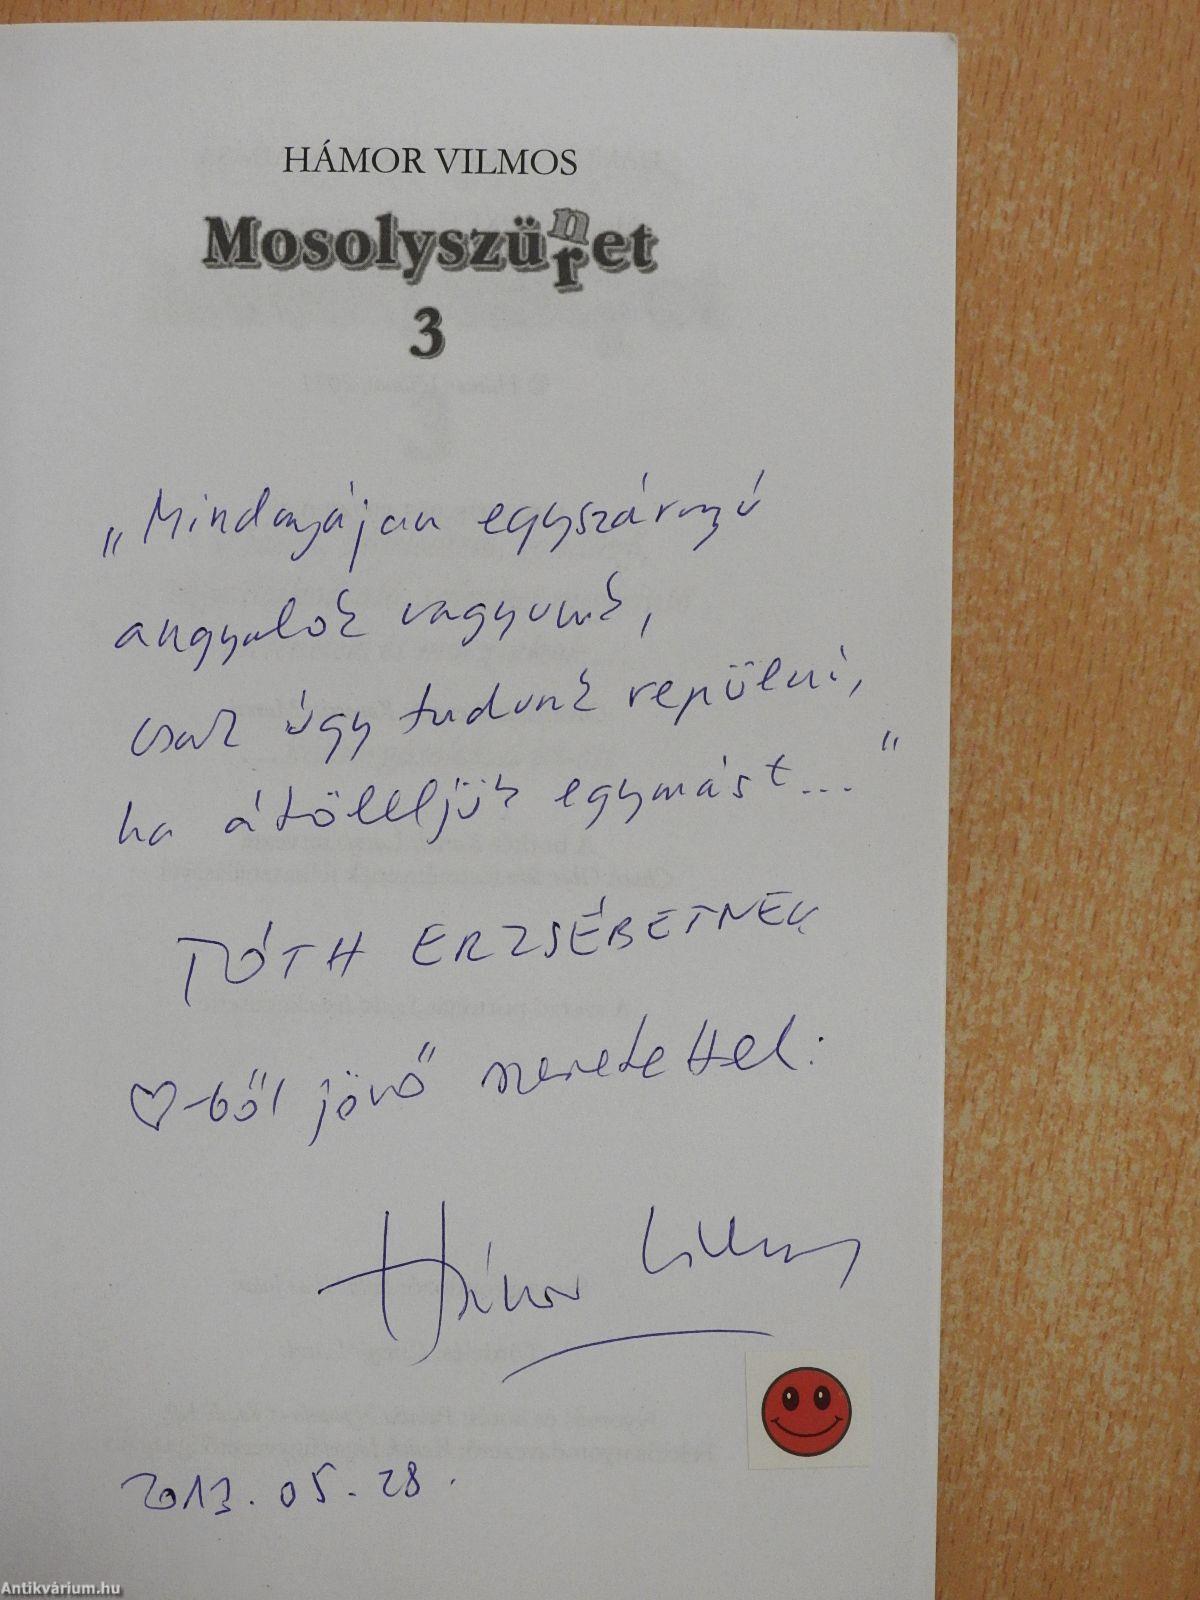 HÁMOR VILMOS
Mosolyszünret
3
„Mindanyájan egyszárnyú
angyalok vagyunk,
csak úgy tudunk repülni,
ha átöleljük egymást..."
TÓTH ERZSÉBETNEK
♡-ből jövő szeretettel:
Hámor Vilmos
2013.05.28.
Antikvárium.hu